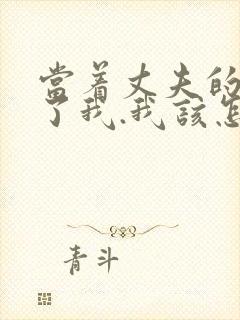 當着丈夫的
了我.我該怎
青斗